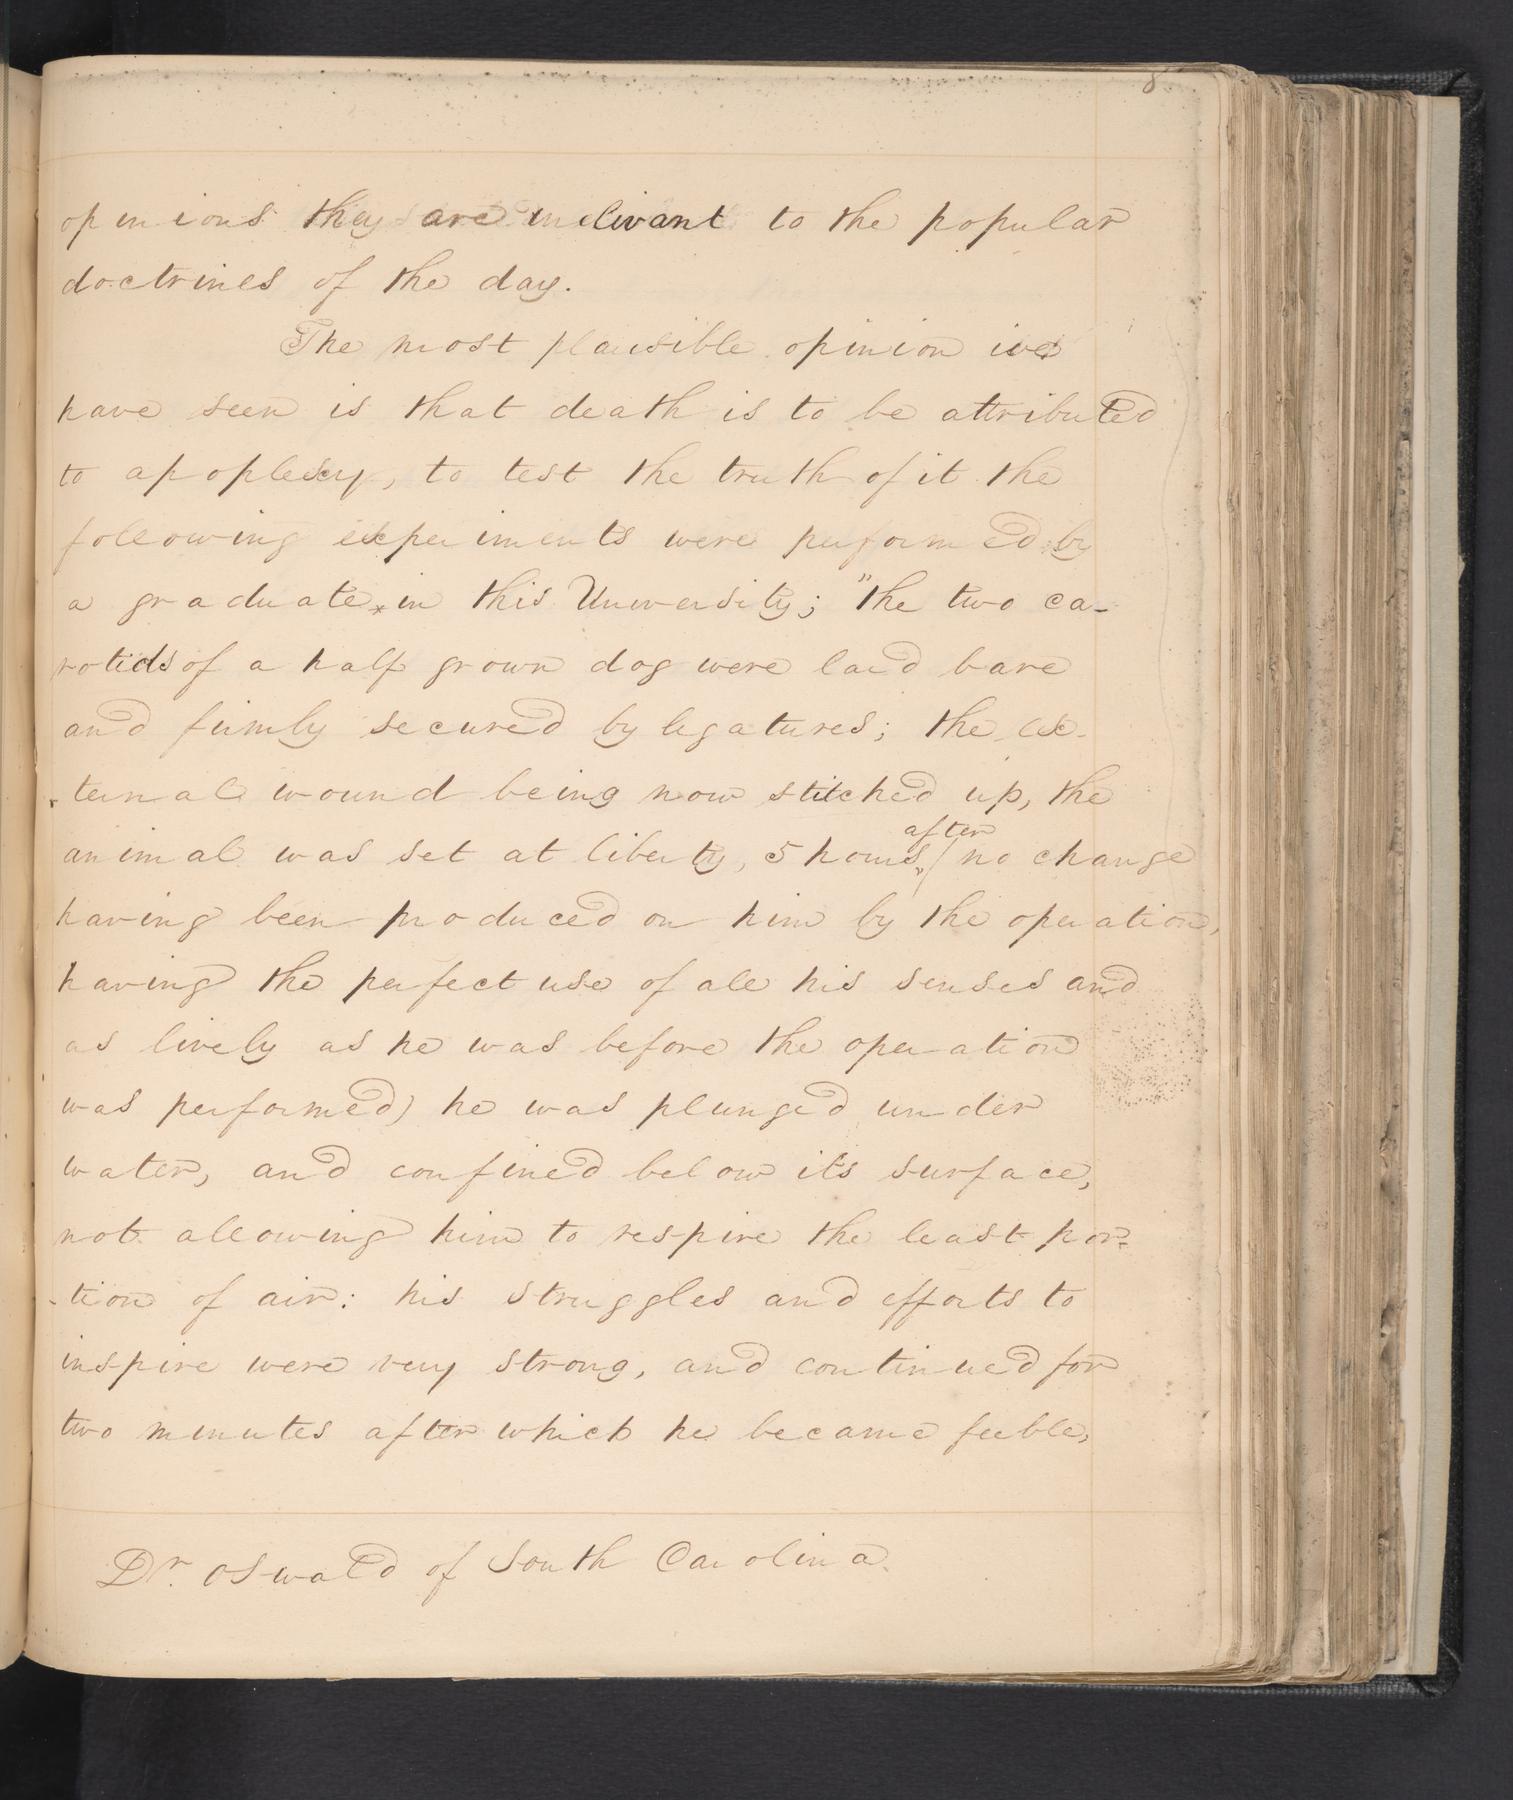 8
opinions they are irrelivant to the popular
doctrines of the day.
The most plausible opinion we
have seen is that death is to be attributed
to apoplexy, to test the truth of it the
following experiments were performed by
a graduate * in this University; "the two ca-
rotids of a half grown dog were laid bare
and firmly secured by legatures; the ex-
-ternal wound being now stitched up, the
after
animal was set at liberty, 5 hours, (no change
having been produced on him by the operation,
having the perfect use of all his senses and
as lively as he was before the operation
was performed) he was plunged under
water, and confined below its surface,
not allowing him to respire the least por-
-tion of air: his struggles and efforts to
inspire were very strong, and continued for
two minutes after which he became feeble,
Dr. Oswald of South Carolina.